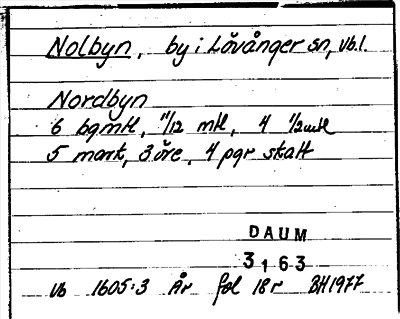 Nolbyn, by i Lövånger sn, vb.l.
Nordbyn
6 bgmtl, 11/12 mtl, 4 1/2mtl
5 mark, 3 öre, 4 pgr skatt
DAUM
3163
Vb 1605:3 År fol 18r BH1977